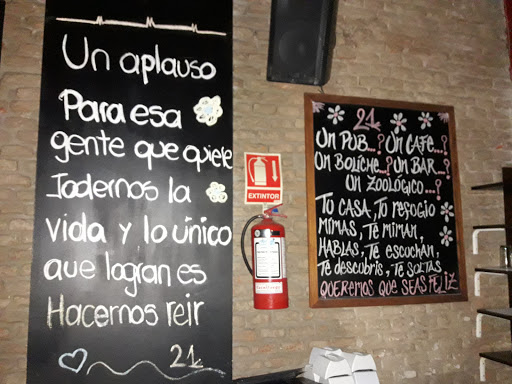 Un aplauso
Para esa
gente que quiere
Jodernos la
vida y lo único
que logran es
Hacernos reir
21
EXTINTOR
21
Un PUB...? Un CAFE...?
Un Boliche...? Un BAR...?
Un Zoológico...?
Tu CASA, Tu refugio
MIMAS, Te MIMAN,
HABLAS, Te escuchan,
Te descubris, Te SOLTAS
QUEREMOS QUE SEAS FELIZ